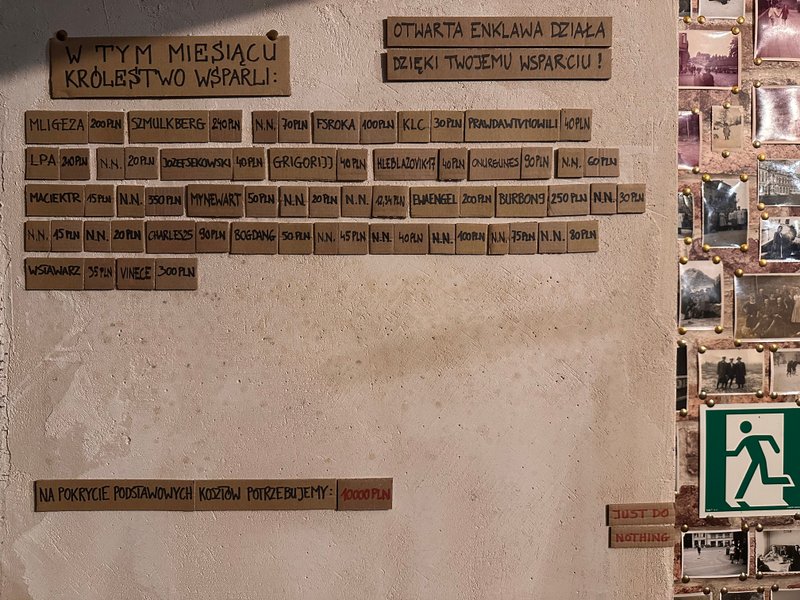 W TYM MIESIĄCU
KRÓLESTWO WSPARLI:
OTWARTA ENKLAWA DZIAŁA
DZIĘKI TWOJEMU WSPARCIU !
MLIGEZA 200 PLN SZMULKBERG 240 PLN N.N. 70 PLN FSROKA 100 PLN KLC 30 PLN PRAWDAWTVNOWILI 40 PLN
LPA 210 PLN N.N. 20 PLN JOZEFSEKOWSKI 40 PLN GRIGORIJJ 40 PLN HLEBLAZOVIK17 40 PLN ONURGUNES 90 PLN N.N. 60 PLN
MACIEKTR 15 PLN N.N. 350 PLN MYNEWART 50 PLN N.N. 20 PLN N.N. 12,34 PLN EWAENGEL 200 PLN BURBON9 250 PLN N.N. 30 PLN
N.N. 15 PLN N.N. 20 PLN CHARLES25 90 PLN BOGDANG 50 PLN N.N. 45 PLN N.N. 40 PLN N.N. 100 PLN N.N. 75 PLN N.N. 80 PLN
WSTAWARZ 35 PLN VINECE 300 PLN
NA POKRYCIE PODSTAWOWYCH KOSZTÓW POTRZEBUJEMY: 10000 PLN
JUST DO
NOTHING